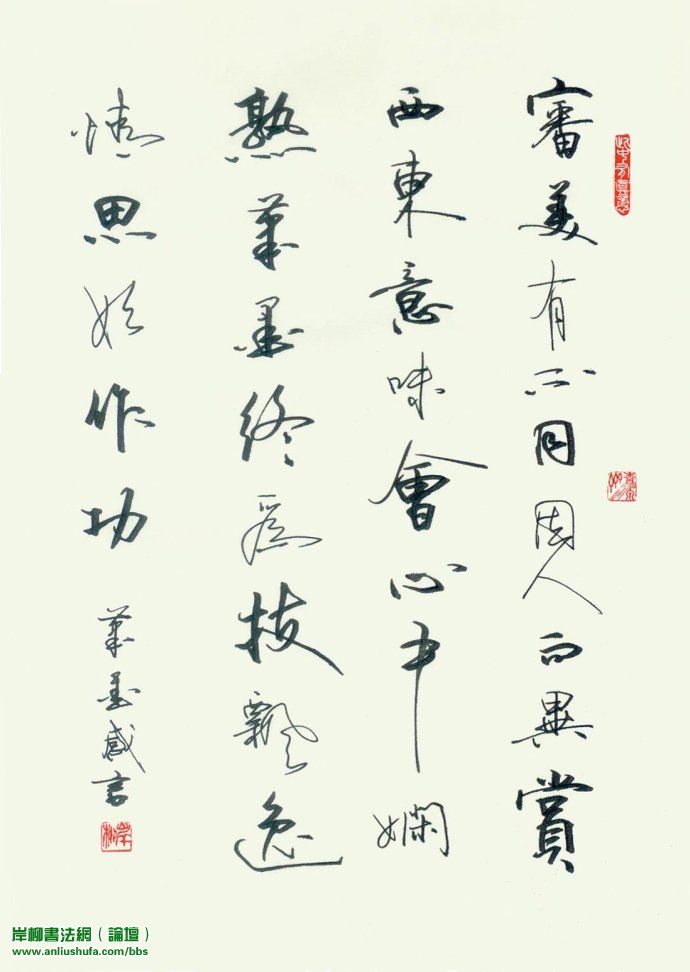 審美有不同因人而異賞
西東意味會心中嫻
熟筆墨終為技飄逸
情思始作功
筆墨感言
岸柳書法網（論壇）
www.anliushufa.com/bbs